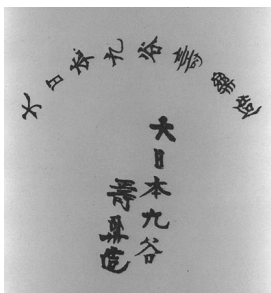 大日本九谷壽造
大日本九谷
壽造